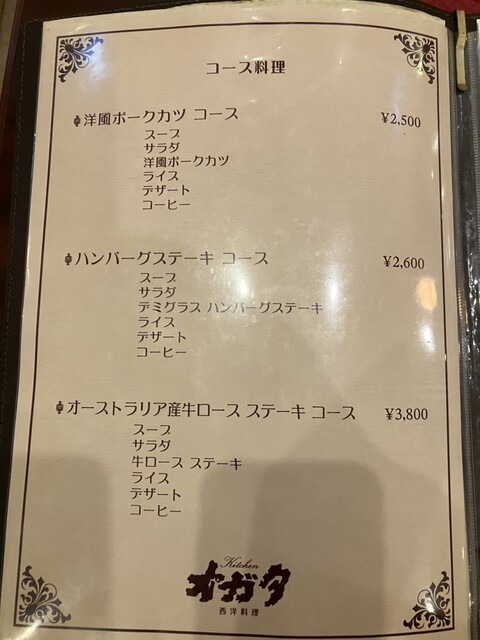 コース料理
洋風ポークカツ コース ¥2,500
スープ
サラダ
洋風ポークカツ
ライス
デザート
コーヒー
ハンバーグステーキ コース ¥2,600
スープ
サラダ
デミグラス ハンバーグステーキ
ライス
デザート
コーヒー
オーストラリア産牛ロース ステーキ コース ¥3,800
スープ
サラダ
牛ロース ステーキ
ライス
デザート
コーヒー
Kitchen
オガタ
西洋料理